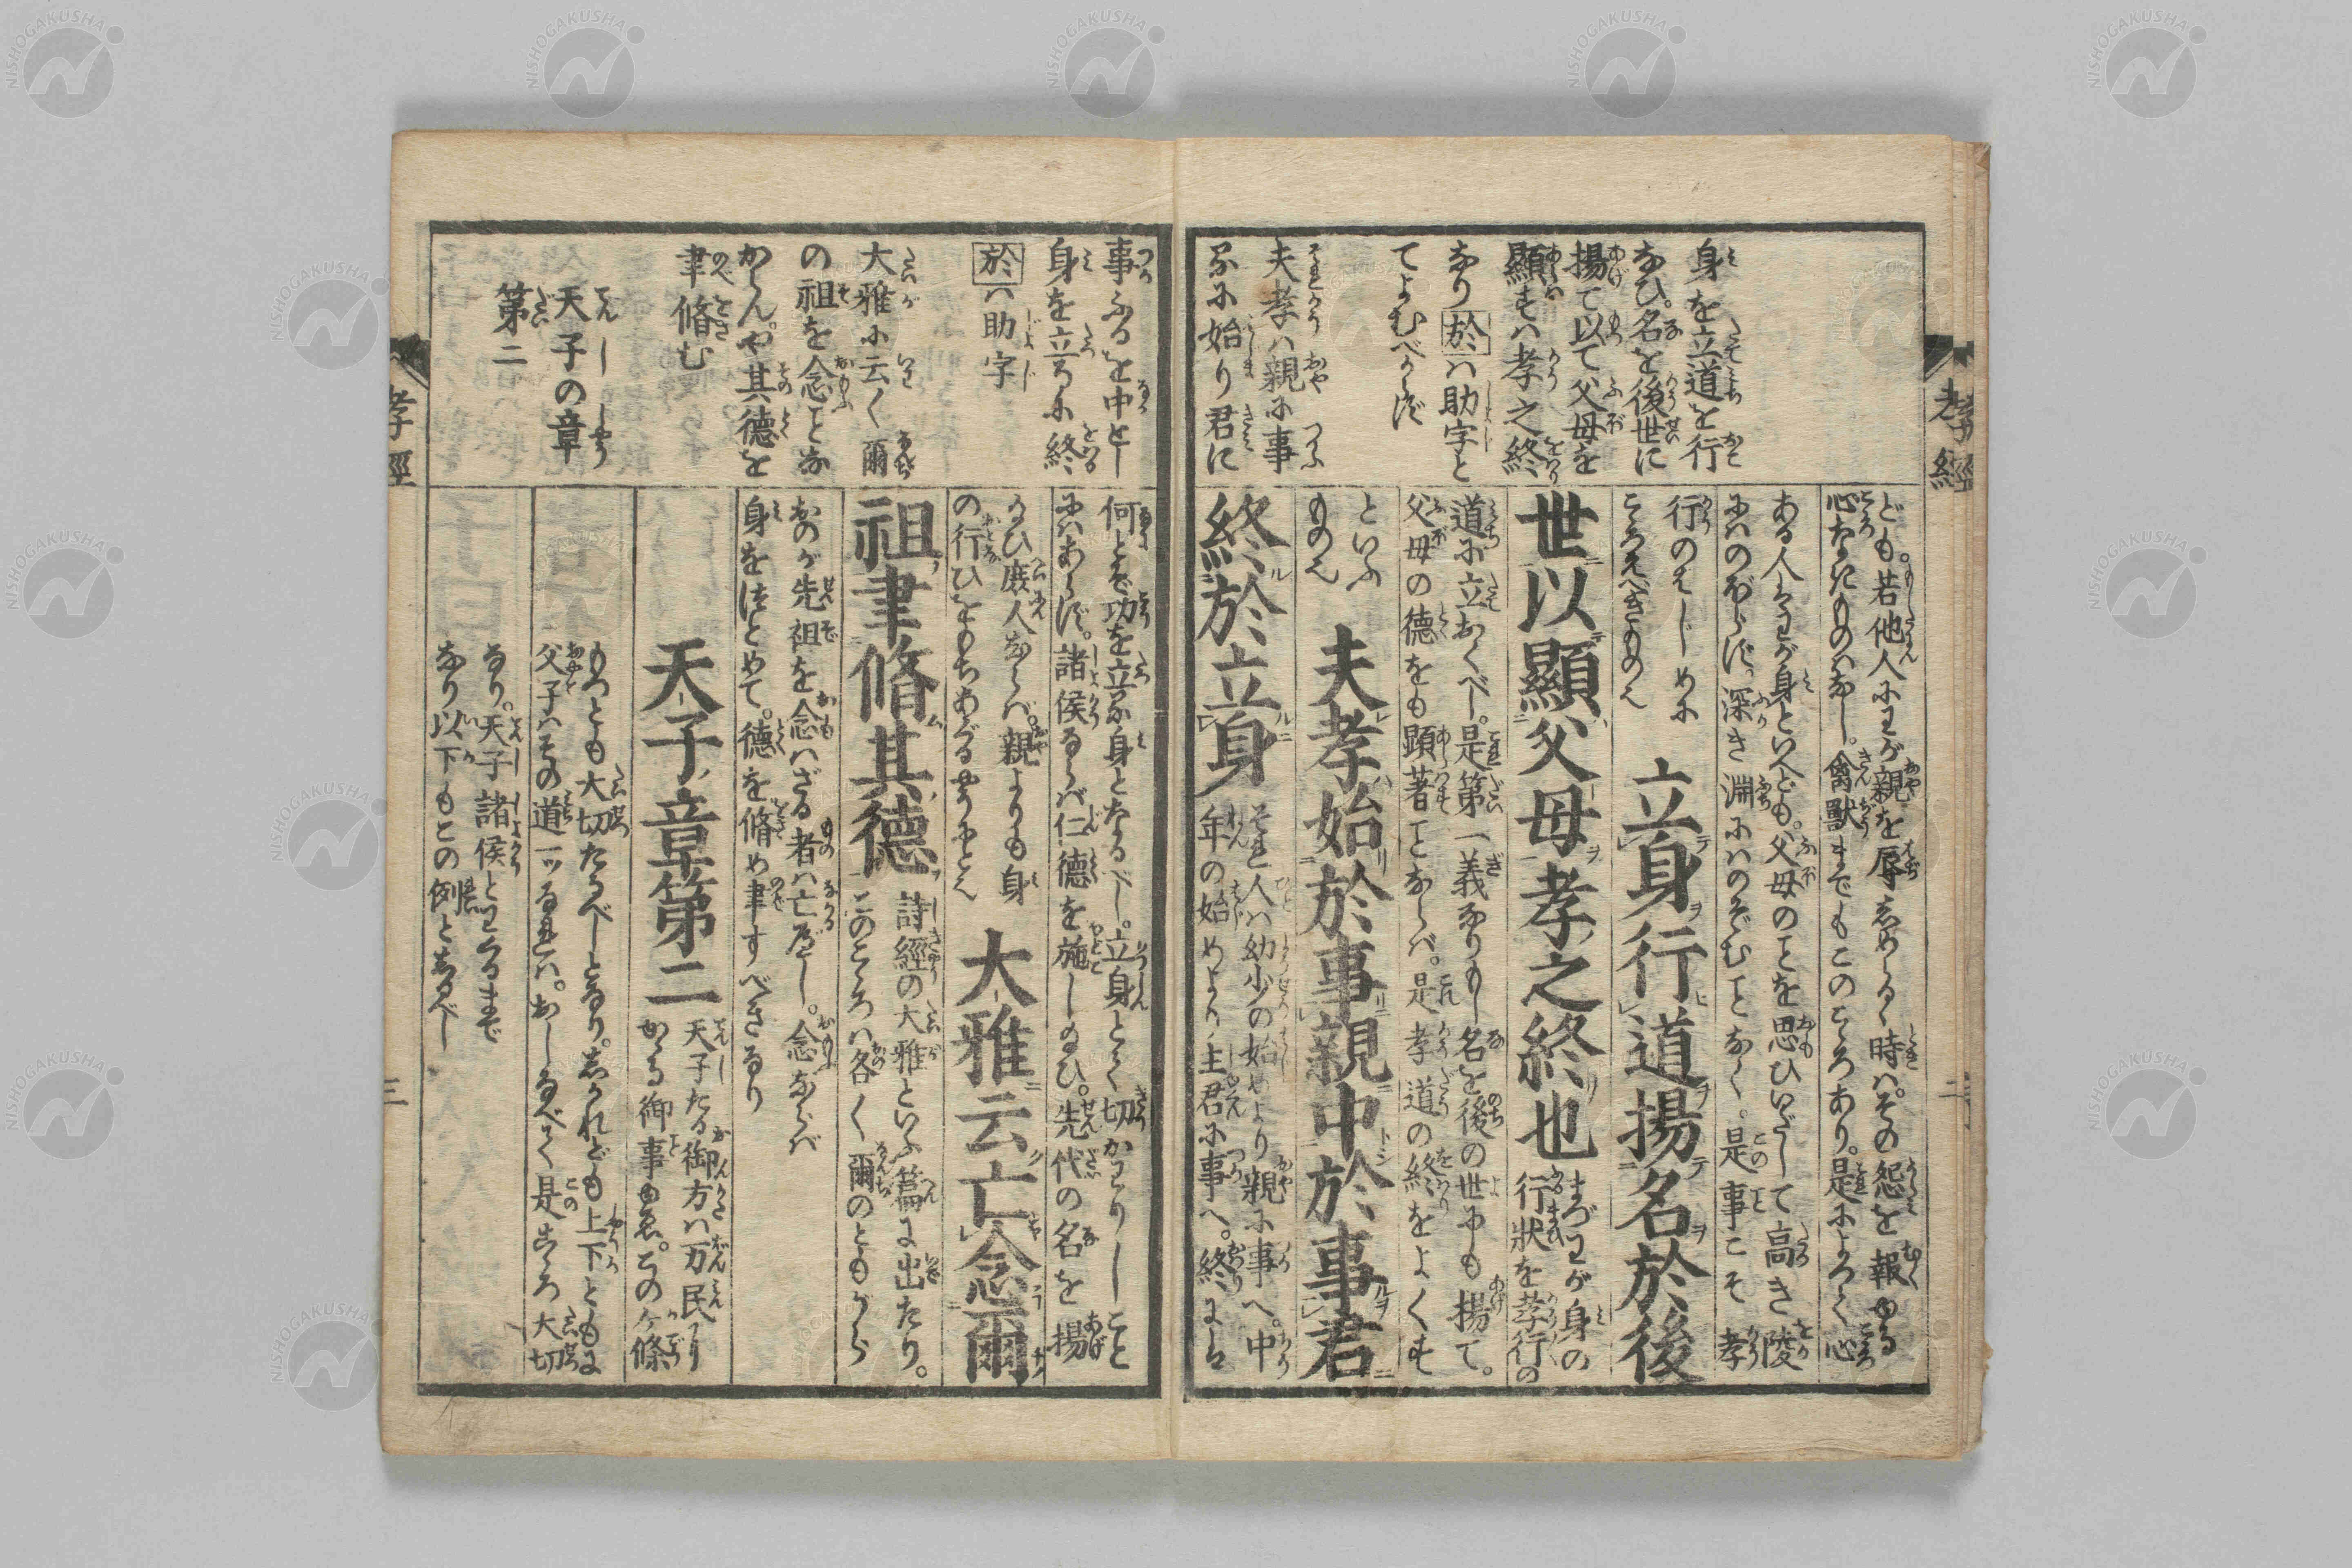 孝經
身を立道を行
なひ。名を後世に
揚て以て父母を
顯すハ孝之終
なり於ハ助字と
てよむべからず
夫孝ハ親に事
るに始り君に
ども。若他人にわが親を辱しめらるゝ時ハ。その怨を報ゆる
心なきものハなし。禽獸までもこのこゝろあり。是によろく心
ある人ハわが身といへども。父母のことを思ひいだして高き陵
にハのぼらず。深き淵にハのぞむことなく。是事こそ孝
行のはじめに
こゝろえべきものゝ
立身行道揚名於後
世以顯父母孝之終也
まづわが身の
行狀を孝行の
道に立おくべし。是第一義なりもし名を後の世にも揚て。
父母の德をも顯著ことならバ。是孝道の終をよくす
といふ
ものゝ
夫孝始於事親中於事君
終於立身
それ人ハ幼少の始めより親に事へ。中
年の始めより主君に事へ。終りにハ
事ふるを中とし
身を立るに終
於ハ助字
大雅に云く爾
の祖を念ことな
からんや其德を
聿脩む
天子の章
第二
何とぞ功を立る身となるべし。立身とハ切かわりしこと
にハあらず。諸侯ならバ仁德を施しゐひ。先代の名を揚
ゐひ庶人ならバ。親よりも身
の行ひをもちあぐるやうにとゝ
大雅云亡念爾
祖聿脩其德
詩經の大雅といふ篇に出たり。
このこゝろハ各く爾のともがら
おのが先祖を念ハざる者ハ亡がし。念ならバ
身をはとめて。德を脩め聿すべきなり
天子章第二
天子たる御方ハ万民のり
かゝる御事ゆゑ。このケ條
もつとも大切たるべしとなり。しかれども上下ともに
父子ハその道一ッなれハ。おしなべて是こゝろ大切
なり。天子諸侯とわくるまで
なり以下もこの例としるべし
孝經
三